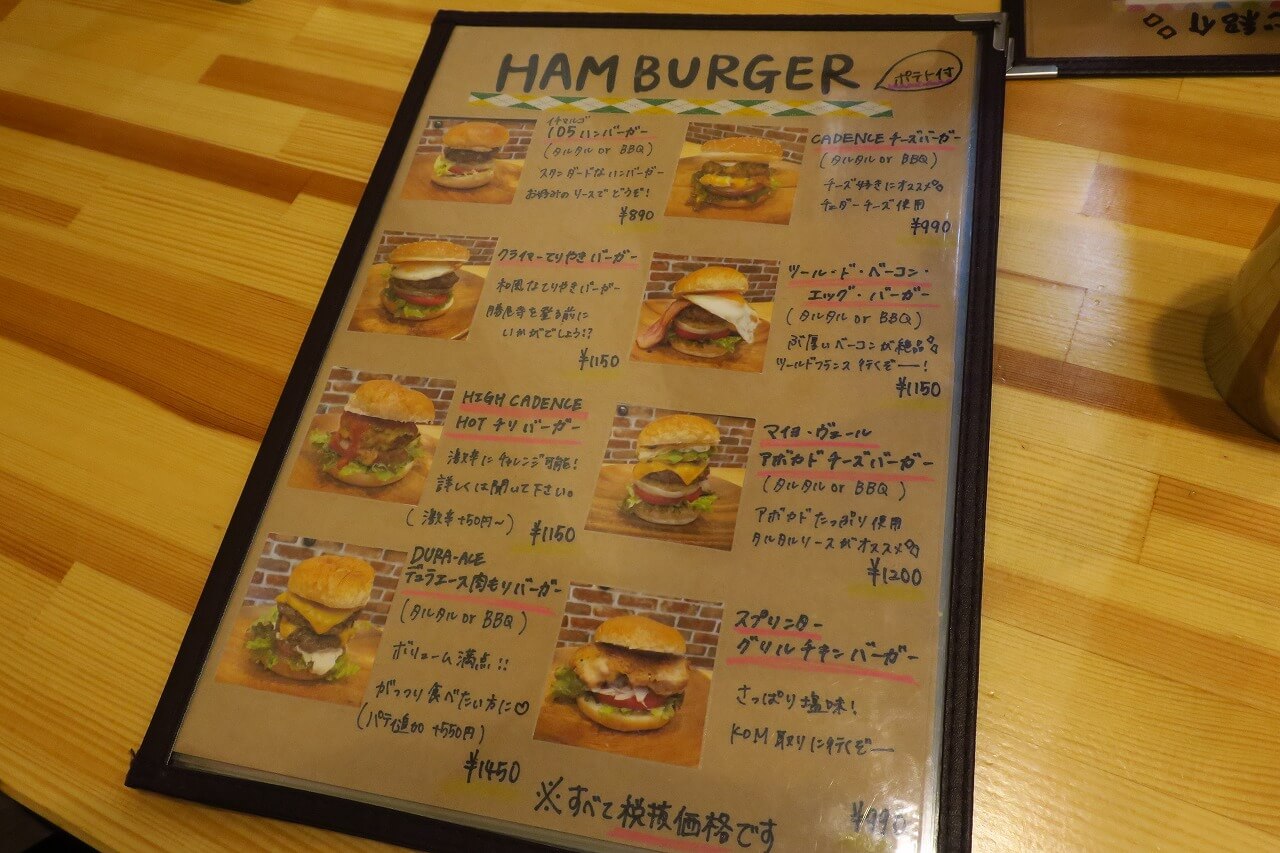 HAMBURGER
ポテト付
イチマルゴ
105ハンバーガー
(タルタル or BBQ)
スタンダードなハンバーガー
お好みのソースでどうぞ!
¥890
CADENCE チーズバーガー
(タルタル or BBQ)
チーズ好きにオススメ
チェダーチーズ使用
¥990
クライマーてりやきバーガー
和風なてりやきバーガー
勝尾寺を登る前に
いかがでしょう!?
¥1150
ツール・ド・ベーコン・
エッグ・バーガー
(タルタル or BBQ)
ぶ厚いベーコンが絶品
ツールドフランス行くぞー!
¥1150
HIGH CADENCE
HOT チリバーガー
激辛にチャレンジ可能!
詳しくは聞いて下さい。
(激辛+50円〜)
¥1150
マイヨ・ヴェール
アボカドチーズバーガー
(タルタル or BBQ)
アボカドたっぷり使用
タルタルソースがオススメ
¥1200
DURA-ACE
デュラエース肉もりバーガー
(タルタル or BBQ)
ボリューム満点!!
がっつり食べたい方に♡
(パティ追加 +550円)
¥1450
スプリンター
グリルチキンバーガー
さっぱり塩味!
KOM取りに行くぞー
¥990
※すべて税抜価格です